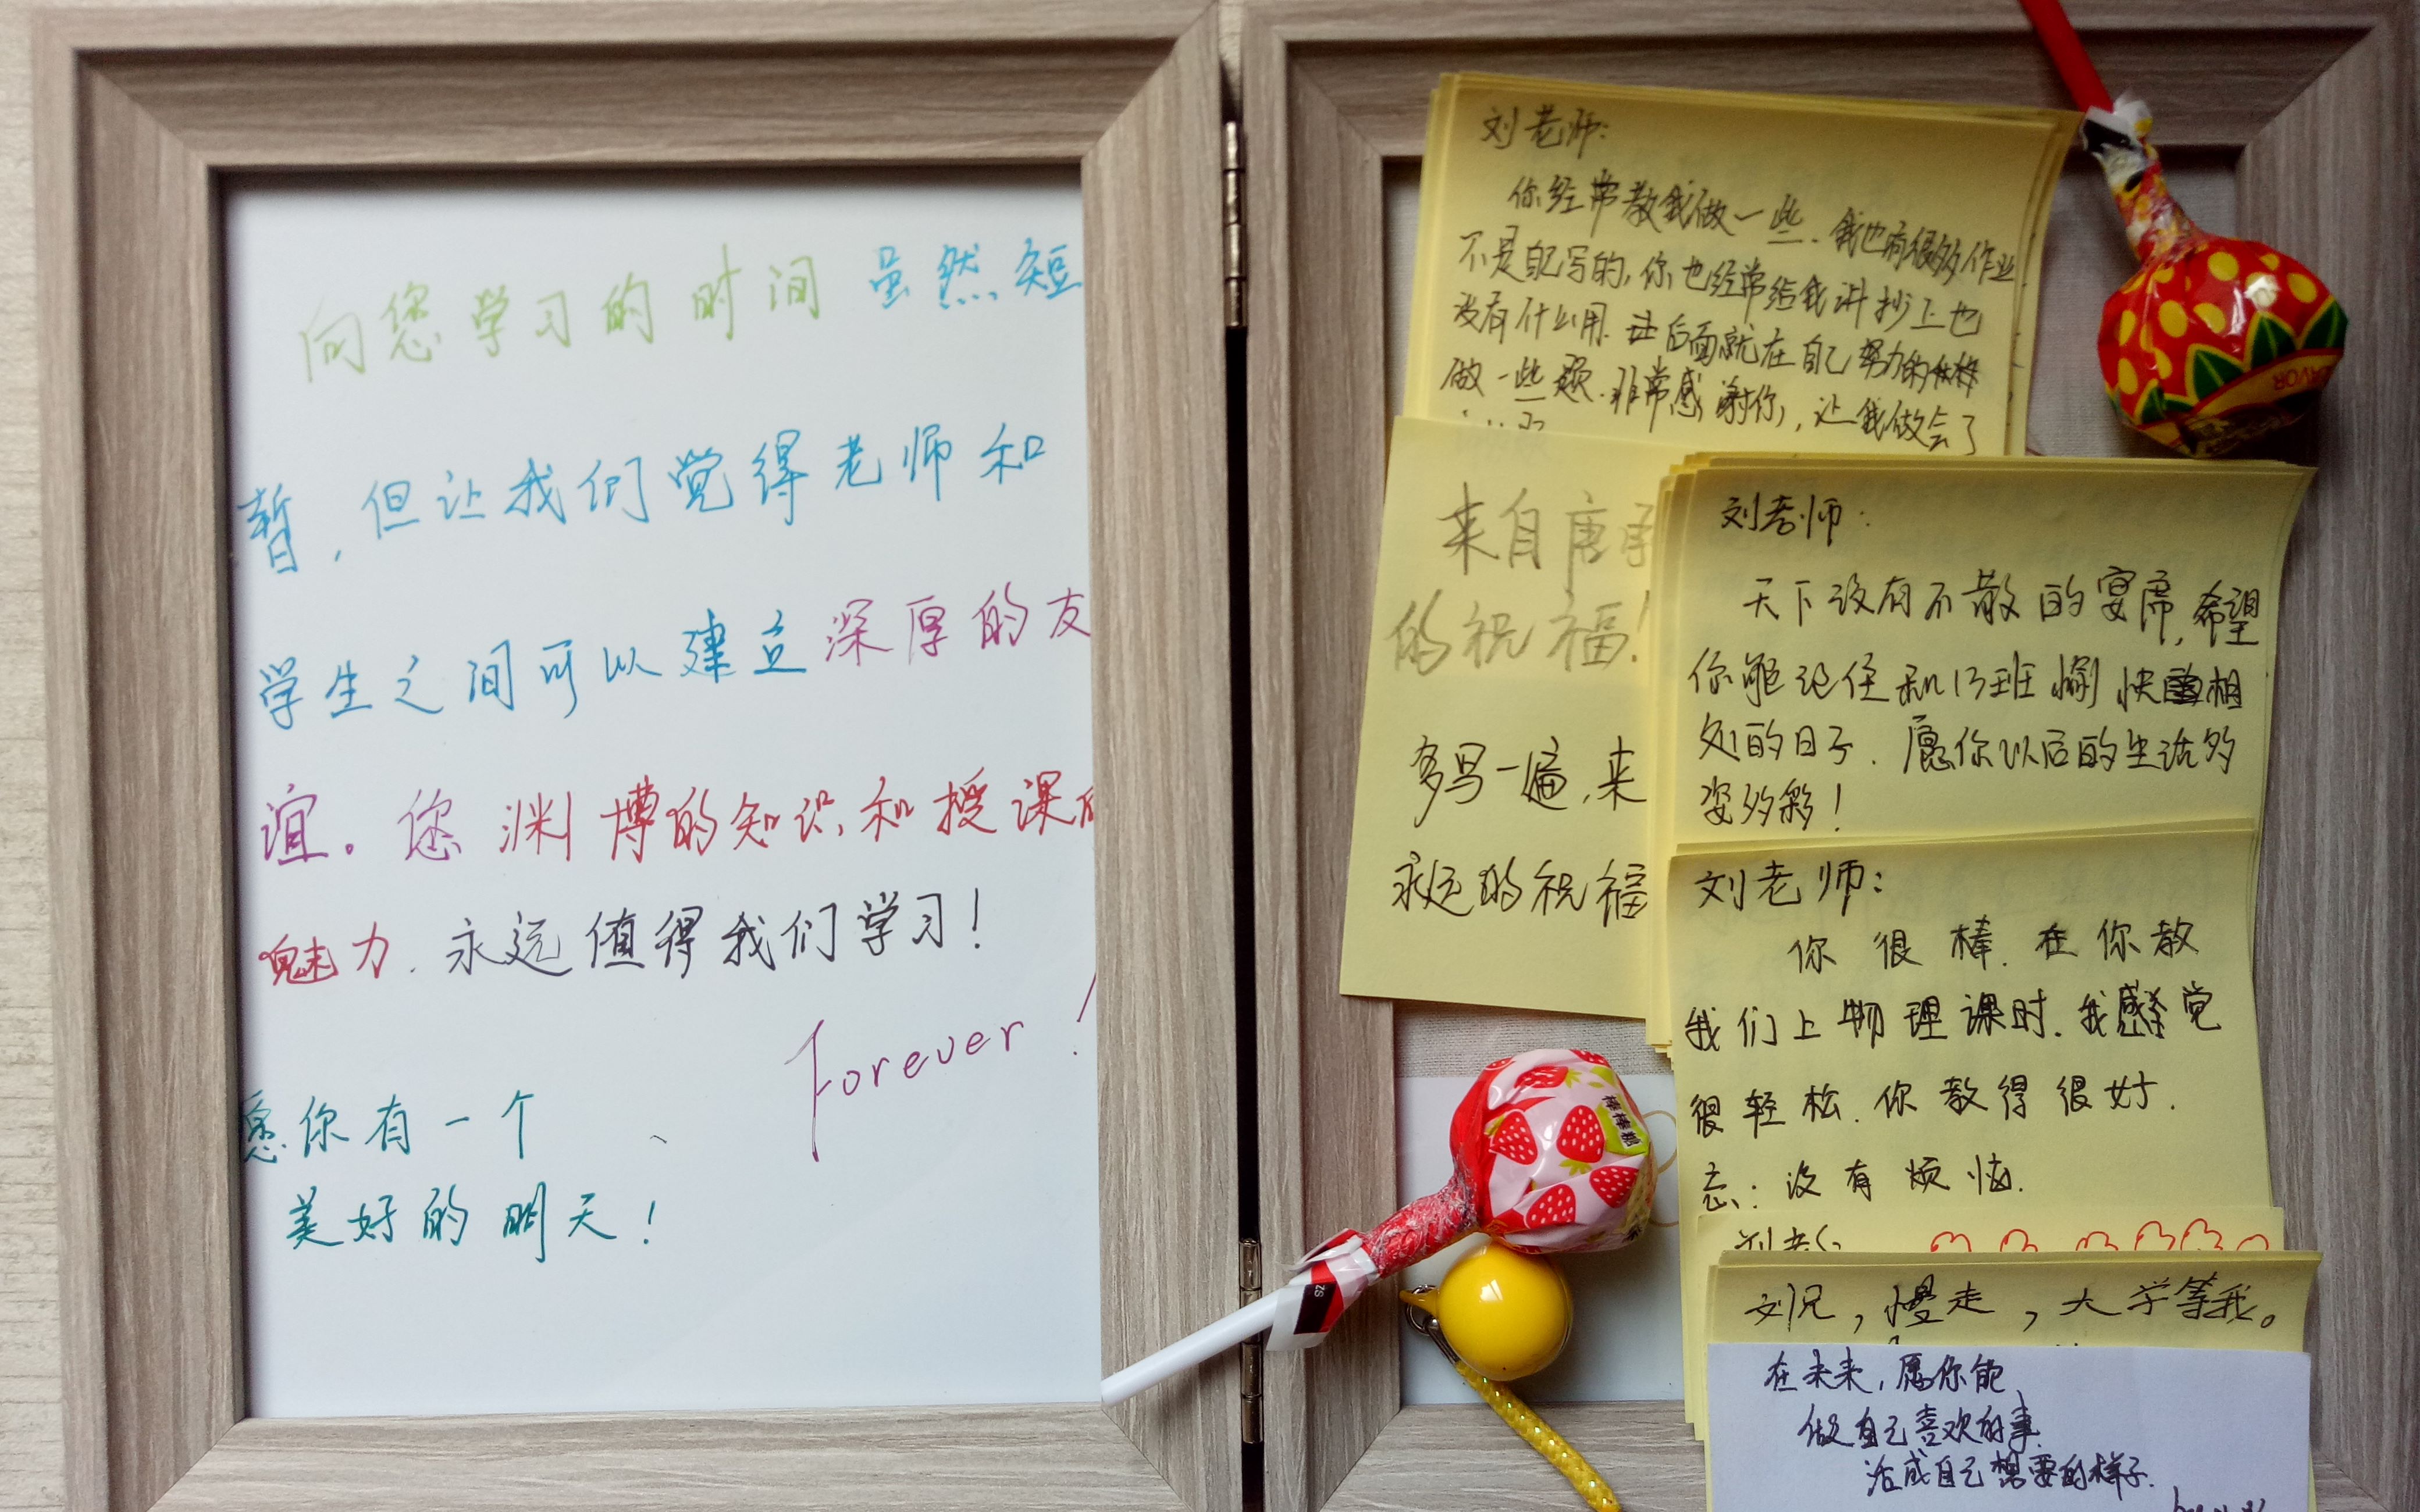 向您学习的时间 虽然短
暂，但让我们觉得老师和
学生之间可以建立深厚的友
谊。您渊博的知识和授课的
魅力，永远值得我们学习！
Forever！
愿你有一个
美好的明天！
刘老师：
你经常教我做一些，我也有很多作业
不是自己写的，你也经常给我讲抄上也
没有什么用，后面就在自己努力的
做一些题，非常感谢你，让我做会了
来自唐
的祝福！
多写一遍，来
永远的祝福
刘老师：
天下没有不散的宴席，希望
你能记住和13班愉快相
处的日子，愿你以后的生活多
姿多彩！
刘老师：
你很棒，在你教
我们上物理课时，我感觉
很轻松，你教得很好，
忘：没有烦恼，
刘老
刘兄，慢走，大学等我。
在未来，愿你能
做自己喜欢的事
活成自己想要的样子，
棒棒糖
ZS